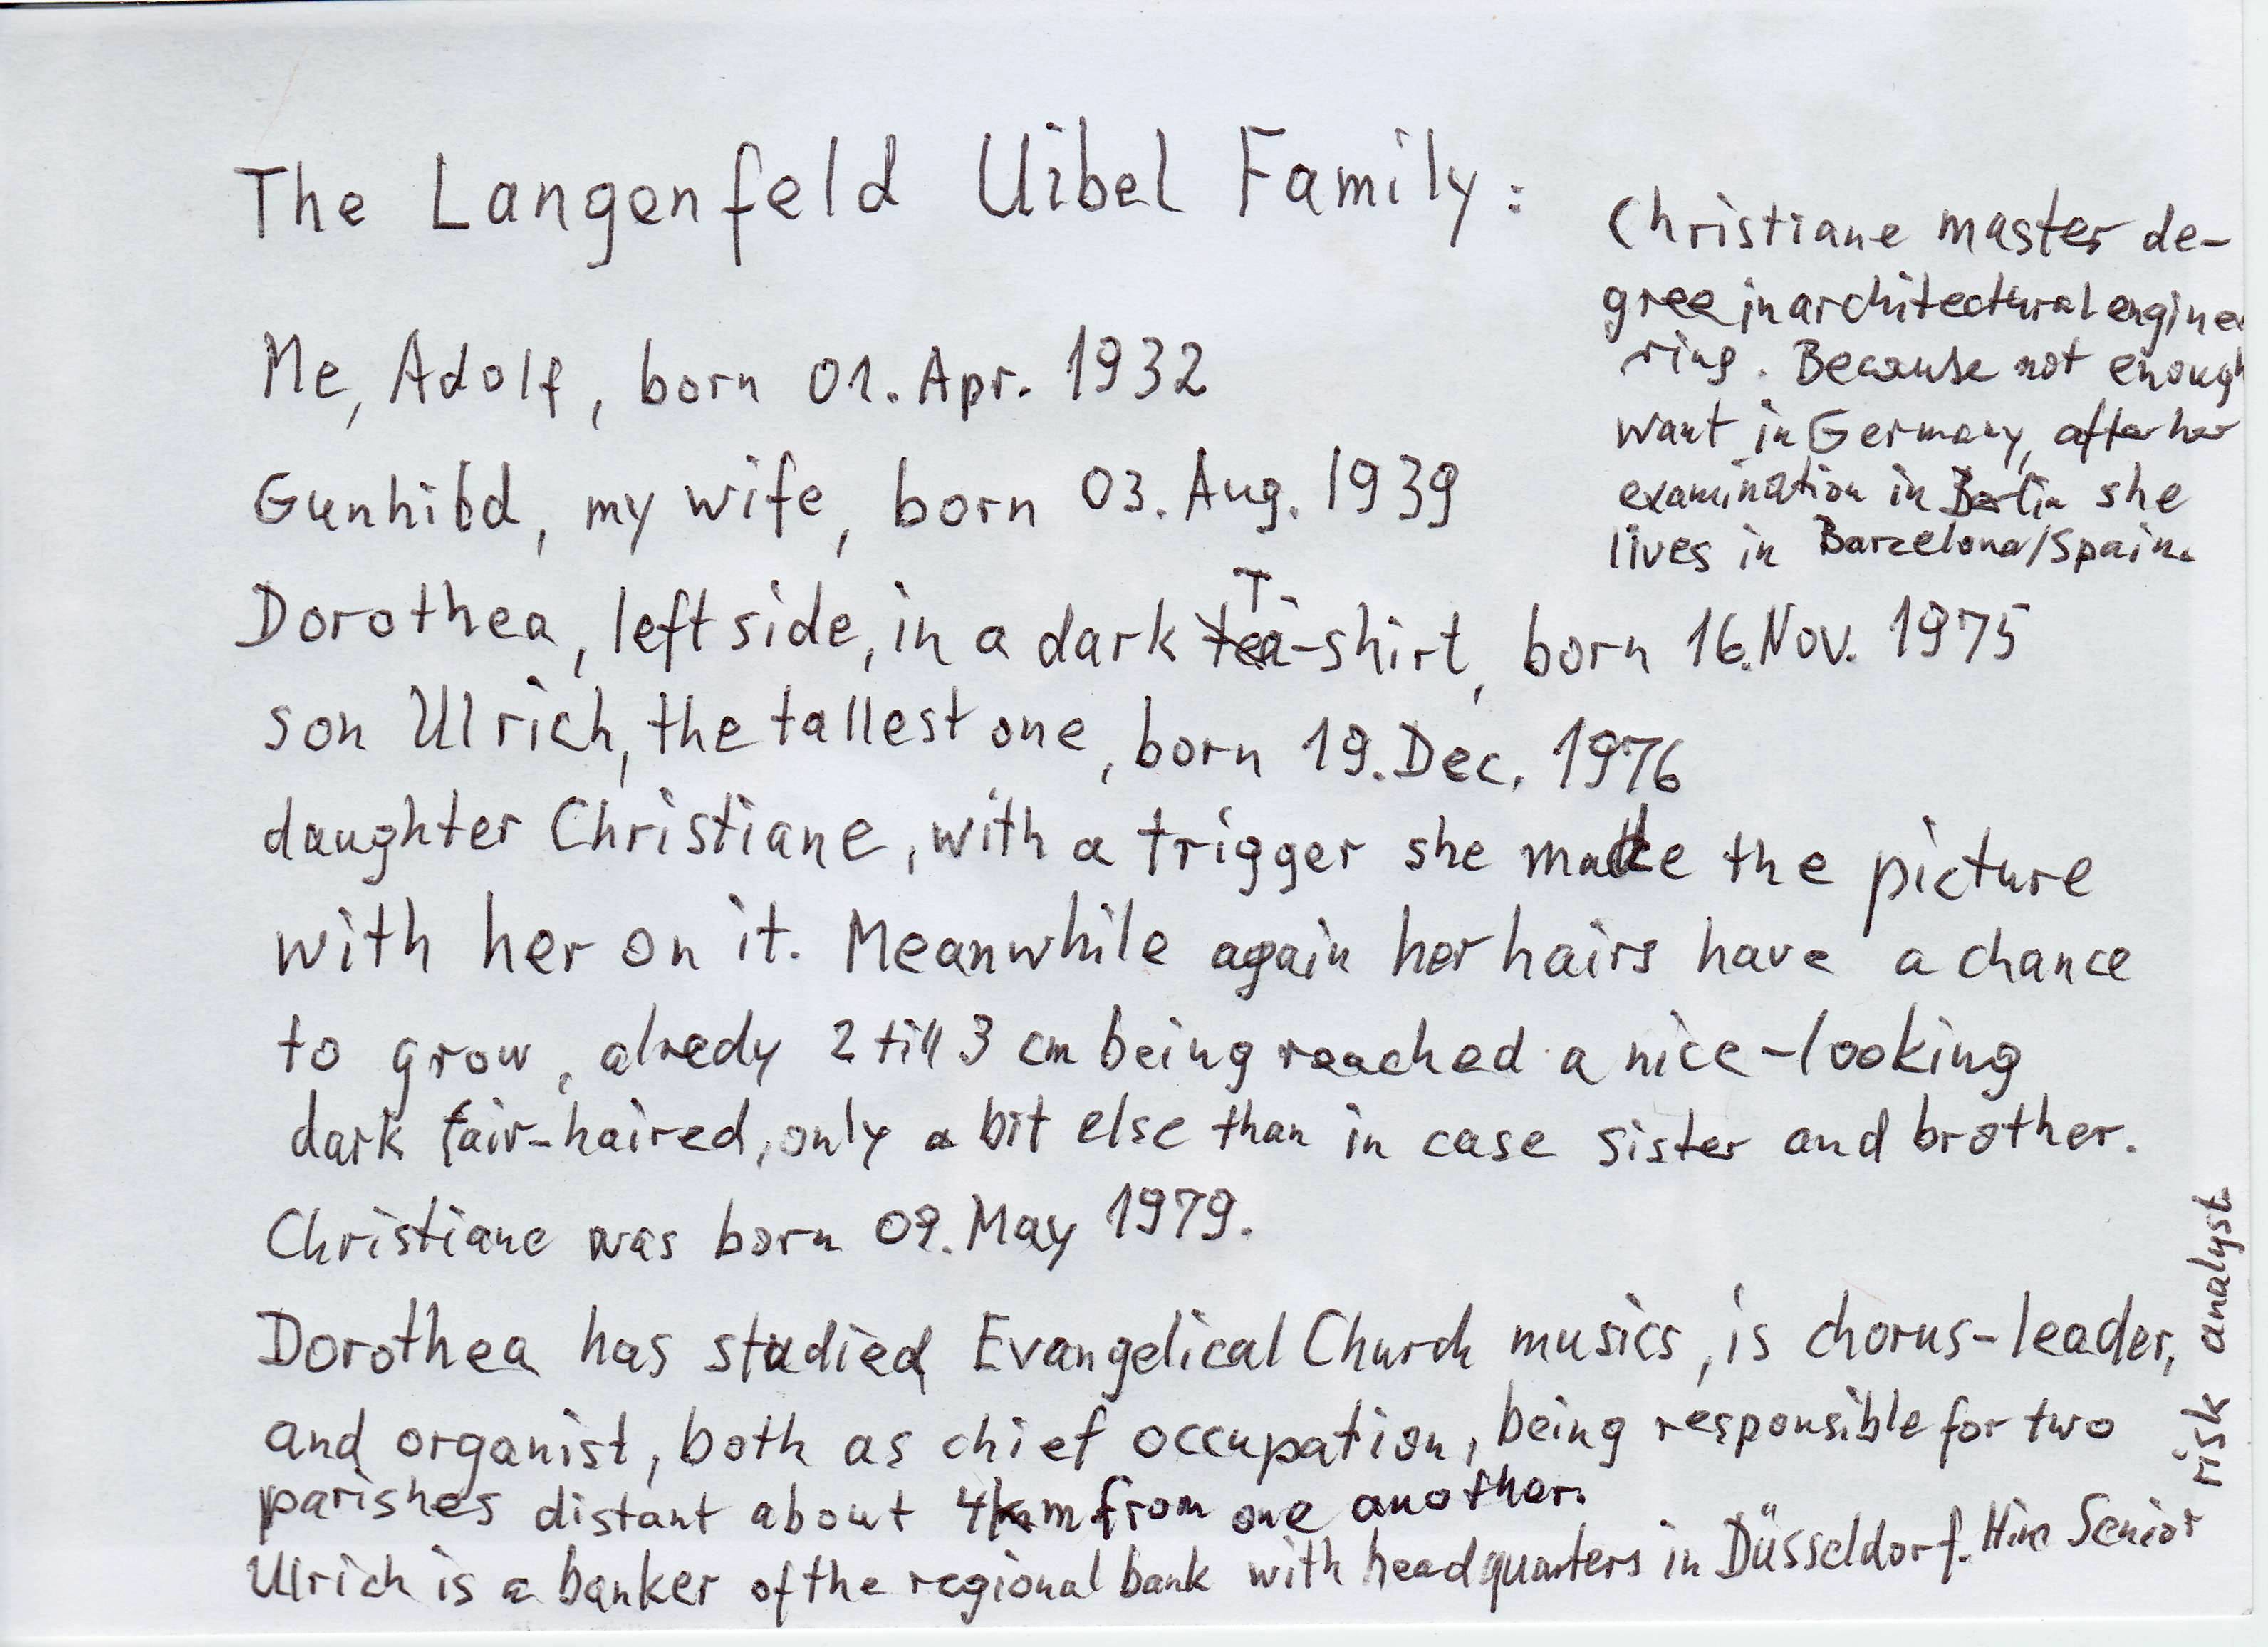 The Langenfeld Uibel Family:
Me, Adolf, born 01. Apr. 1932
Gunhild, my wife, born 03. Aug. 1939
Dorothea, left side, in a dark T-shirt, born 16. Nov. 1975
son Ulrich, the tallest one, born 19. Dec. 1976
daughter Christiane, with a trigger she made the picture
with her on it. Meanwhile again her hairs have a chance
to grow, alredy 2 till 3 cm being reached a nice-looking
dark fair-haired, only a bit else than in case sister and brother.
Christiane was born 09. May 1979.
Dorothea has studied Evangelical Church musics, is chorus-leader,
and organist, both as chief occupation, being responsible for two
parishes distant about 4km from one another.
Ulrich is a banker of the regional bank with headquarters in Düsseldorf. Senior
risk analyst
Christiane master de-
gree in architectural enginee
ring. Because not enough
want in Germany, after her
examination in Berlin she
lives in Barcelona/Spain.